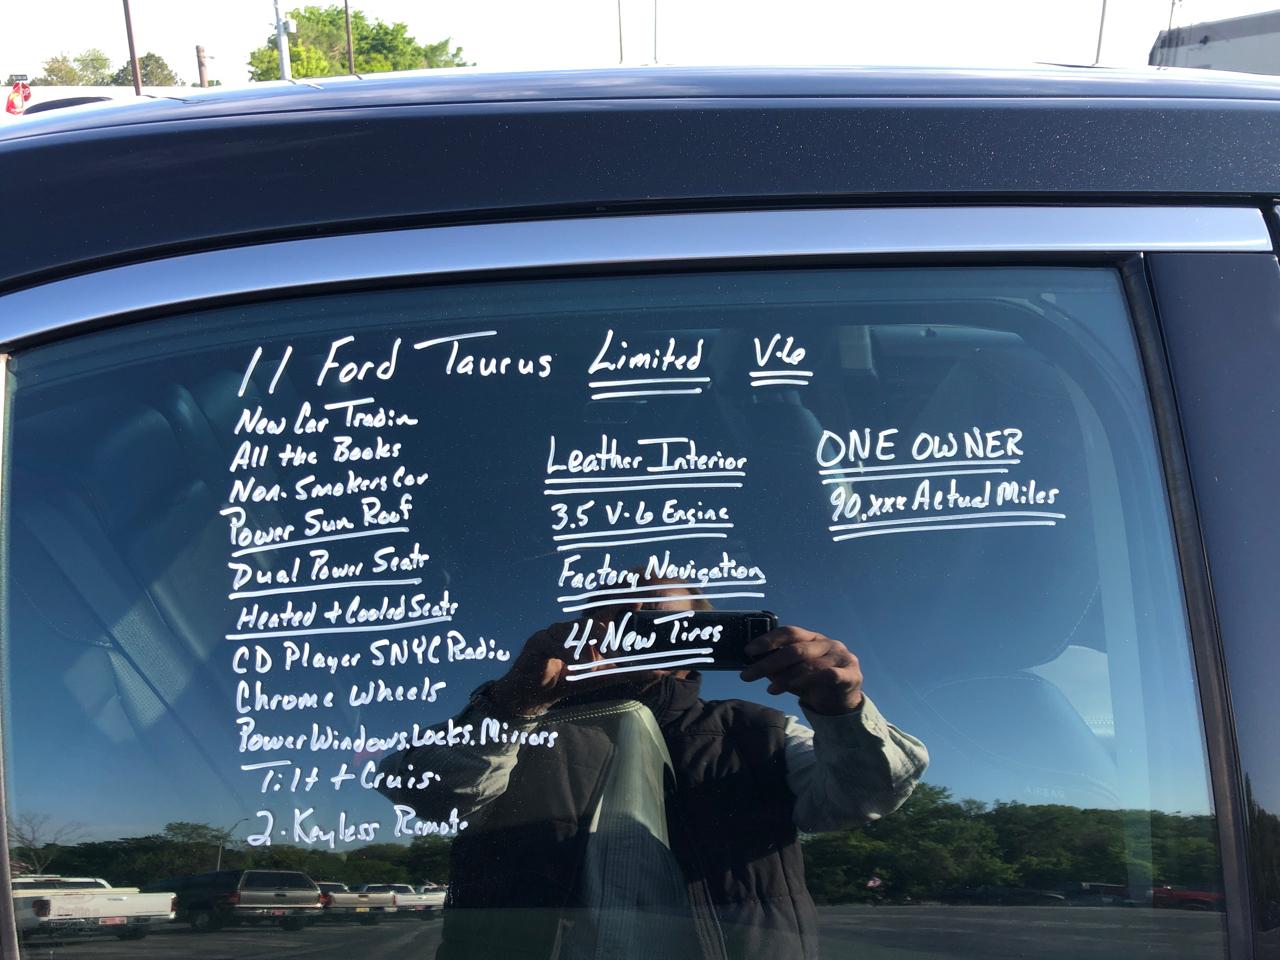 11 Ford Taurus Limited V-6
New Car Tradin
All the Books
Non-Smokers Car
Power Sun Roof
Dual Power Seats
Heated + Cooled Seats
CD Player SNYC Radio
Chrome Wheels
Power Windows. Locks. Mirrors
Tilt + Cruis
2-Keyless Remote
Leather Interior
3.5 V-6 Engine
Factory Navigation
4-New Tires
ONE OWNER
90,xxx Actual Miles
AIRBAG